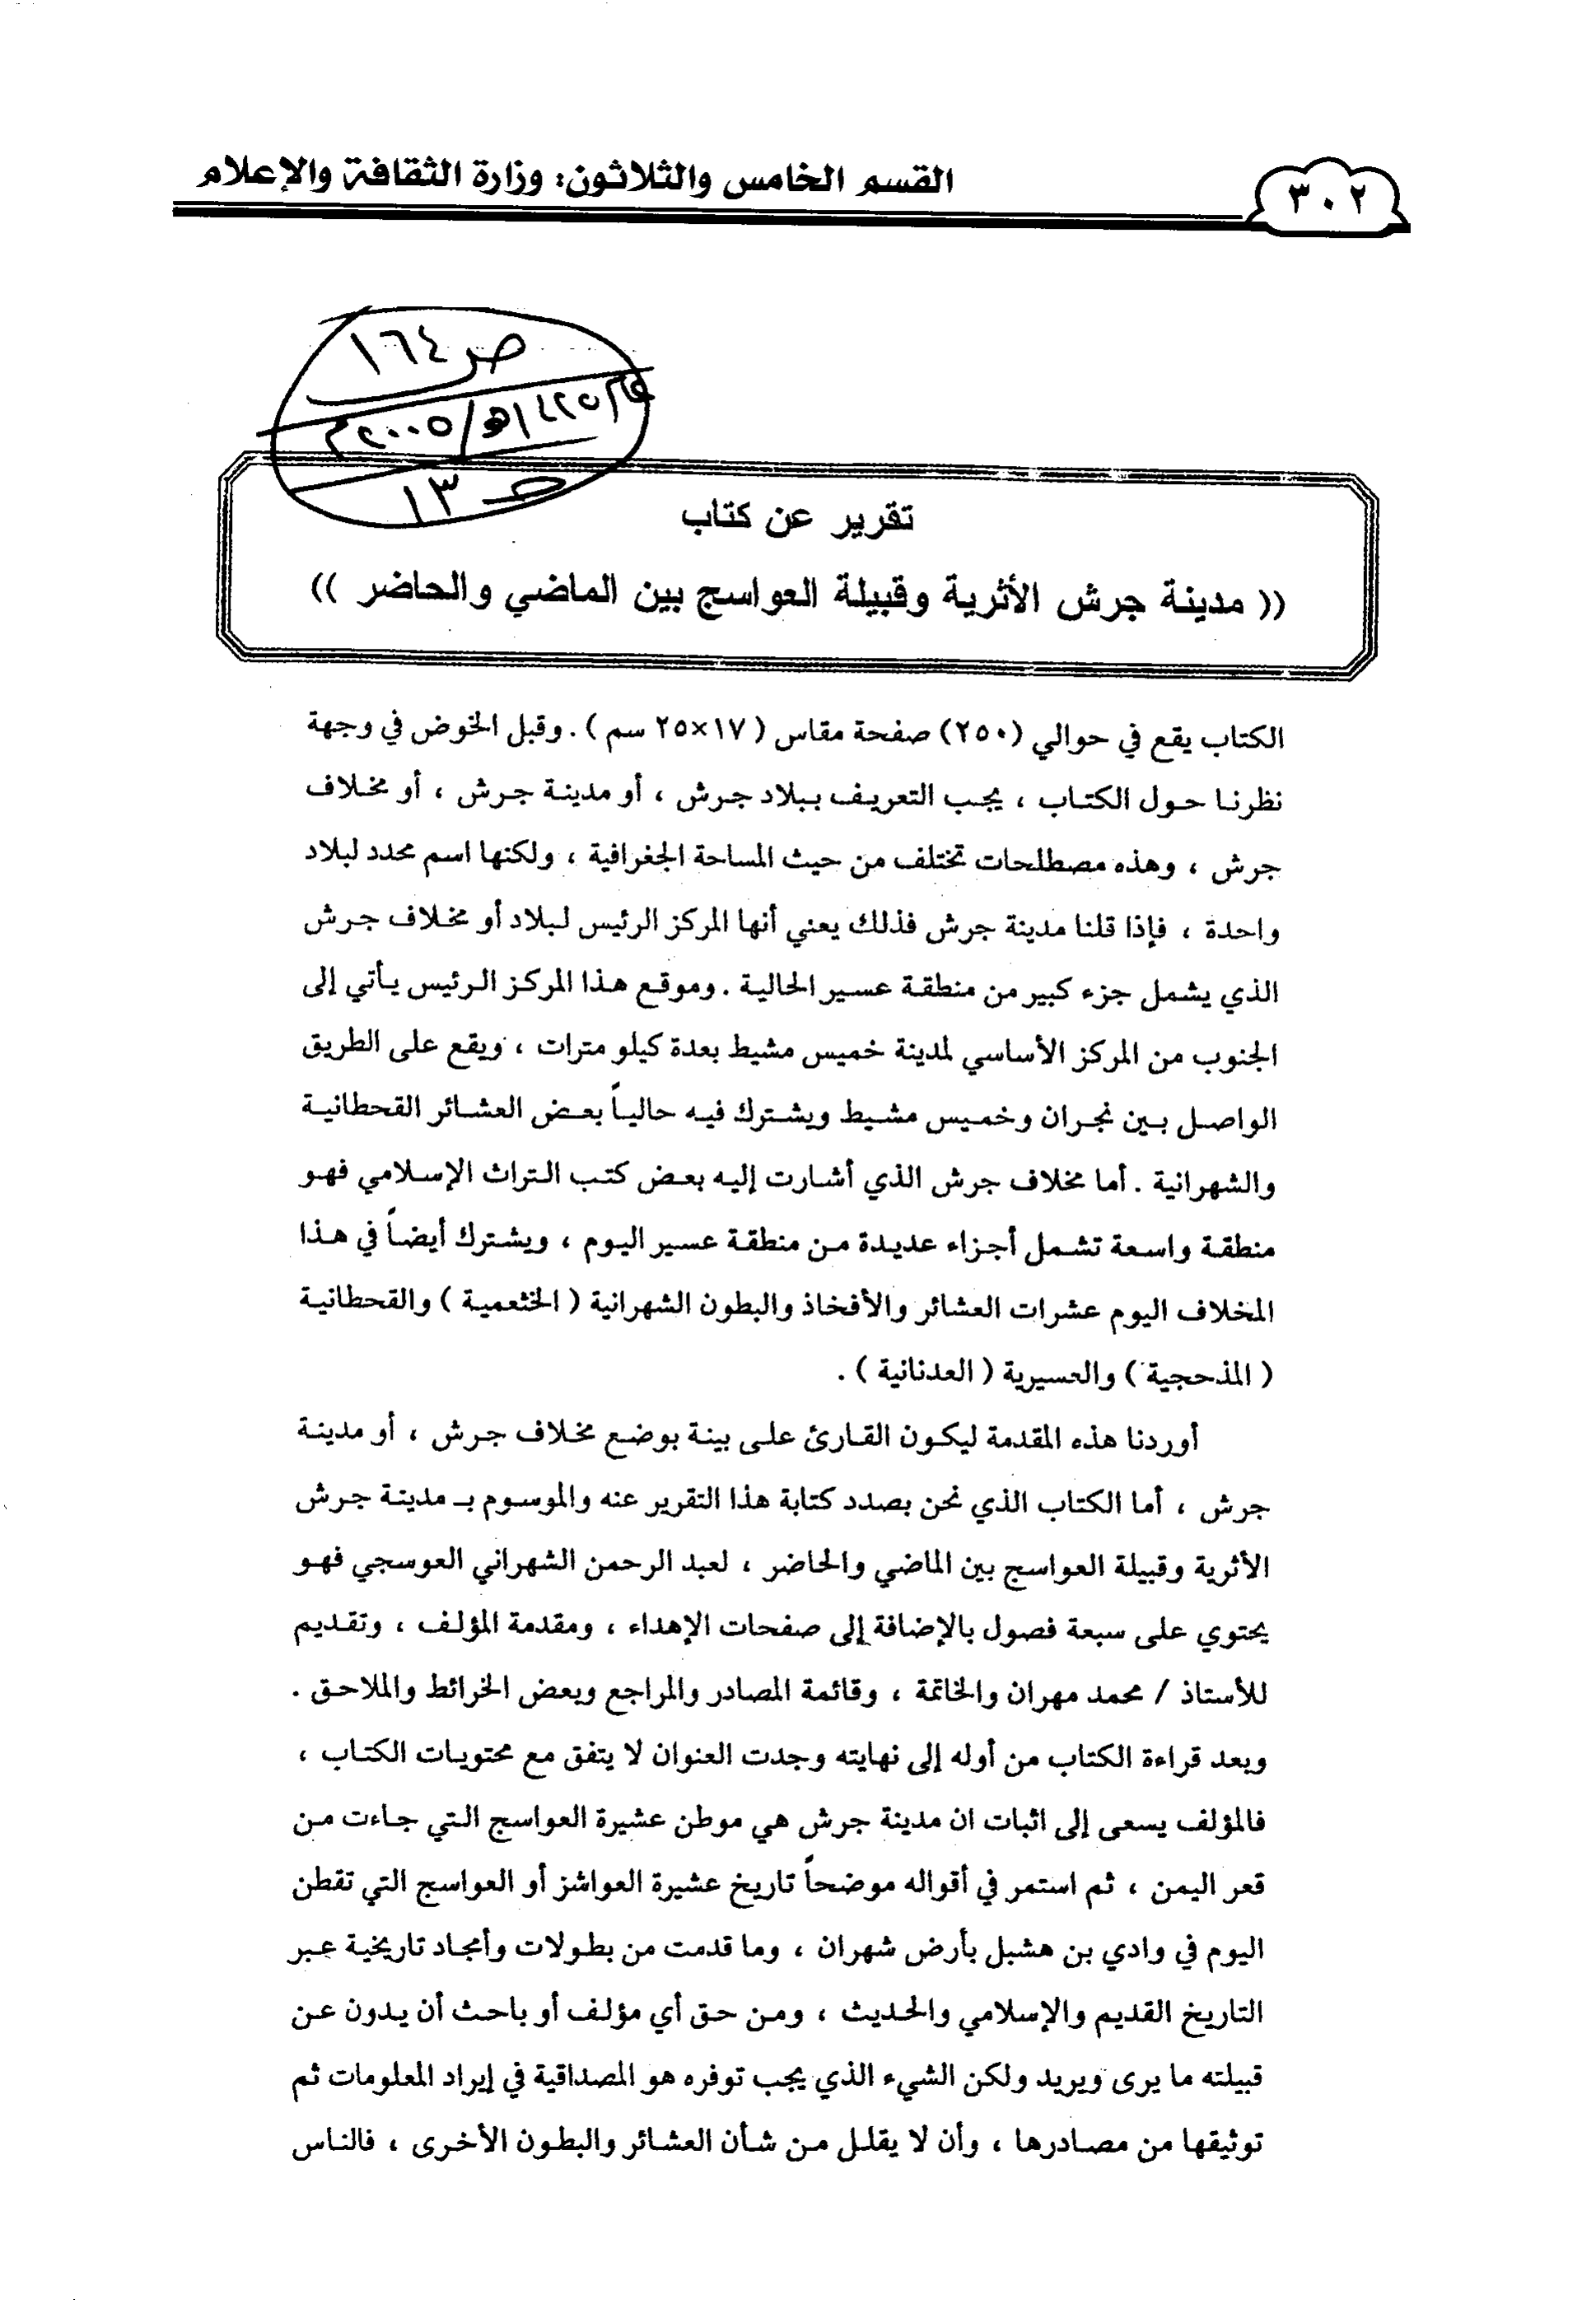 ٣٠٢
القسم الخامس والثلاثون: وزارة الثقافة والإعلام
ص ١٦٤
عام ١٤٢٥هـ/٢٠٠٥م
حـ ١٣
تقرير عن كتاب
(( مدينة جرش الأثرية وقبيلة العواسج بين الماضي والحاضر ))
الكتاب يقع في حوالي (٢٥٠) صفحة مقاس ( ١٧×٢٥ سم ) . وقبل الخوض في وجهة
نظرنا حول الكتاب ، يجب التعريف ببلاد جرش ، أو مدينة جرش ، أو مخلاف
جرش ، وهذه مصطلحات تختلف من حيث المساحة الجغرافية ، ولكنها اسم محدد لبلاد
واحدة ، فإذا قلنا مدينة جرش فذلك يعني أنها المركز الرئيس لبلاد أو مخلاف جرش
الذي يشمل جزء كبير من منطقة عسير الحالية . وموقع هذا المركز الرئيس يأتي إلى
الجنوب من المركز الأساسي لمدينة خميس مشيط بعدة كيلو مترات ، ويقع على الطريق
الواصل بين نجران وخميس مشيط ويشترك فيه حالياً بعض العشائر القحطانية
والشهرانية . أما مخلاف جرش الذي أشارت إليه بعض كتب التراث الإسلامي فهو
منطقة واسعة تشمل أجزاء عديدة من منطقة عسير اليوم ، ويشترك أيضاً في هذا
المخلاف اليوم عشرات العشائر والأفخاذ والبطون الشهرانية ( الخثعمية ) والقحطانية
( المذحجية ) والعسيرية ( العدنانية ) .
أوردنا هذه المقدمة ليكون القارئ على بينة بوضع مخلاف جرش ، أو مدينة
جرش ، أما الكتاب الذي نحن بصدد كتابة هذا التقرير عنه والموسوم بـ مدينة جرش
الأثرية وقبيلة العواسج بين الماضي والحاضر ، لعبد الرحمن الشهراني العوسجي فهو
يحتوي على سبعة فصول بالإضافة إلى صفحات الإهداء ، ومقدمة المؤلف ، وتقديم
للأستاذ / محمد مهران والخاتمة ، وقائمة المصادر والمراجع وبعض الخرائط والملاحق .
وبعد قراءة الكتاب من أوله إلى نهايته وجدت العنوان لا يتفق مع محتويات الكتاب ،
فالمؤلف يسعى إلى اثبات ان مدينة جرش هي موطن عشيرة العواسج التي جاءت من
قعر اليمن ، ثم استمر في أقواله موضحاً تاريخ عشيرة العواشز أو العواسج التي تقطن
اليوم في وادي بن هشبل بأرض شهران ، وما قدمت من بطولات وأمجاد تاريخية عبر
التاريخ القديم والإسلامي والحديث ، ومن حق أي مؤلف أو باحث أن يدون عن
قبيلته ما يرى ويريد ولكن الشيء الذي يجب توفره هو المصداقية في إيراد المعلومات ثم
توثيقها من مصادرها ، وأن لا يقلل من شأن العشائر والبطون الأخرى ، فالناس